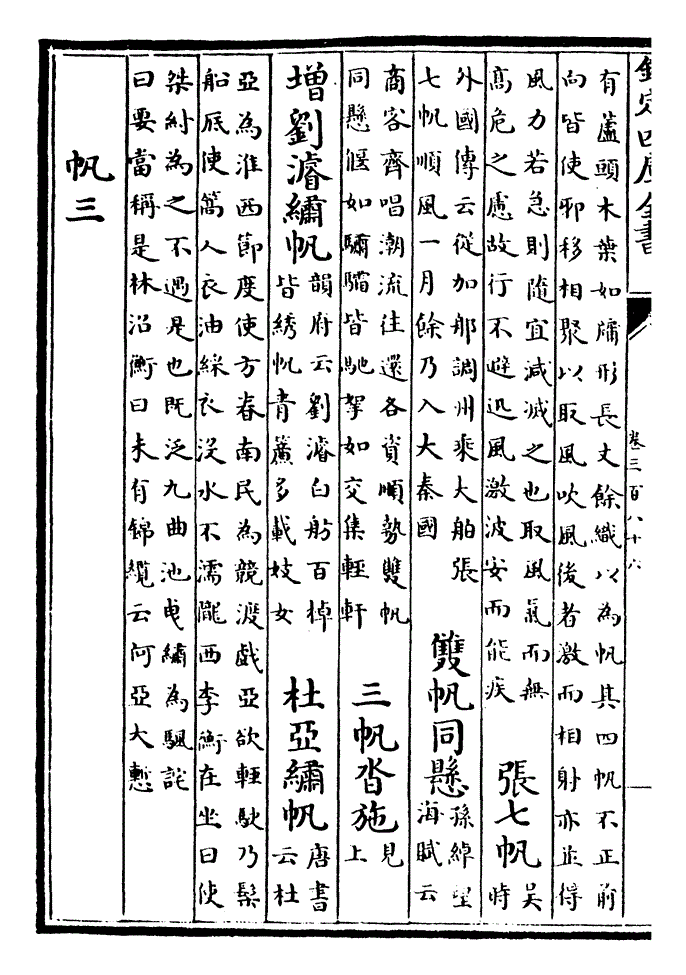 欽定四庫全書
卷三百八十六
有蘆頭木葉如牖形長丈餘織以為帆其四帆不正前
向皆使邪移相聚以取風吹風後者激而相射亦並得
風力若急則隨宜減滅之也取風氣而無
高危之慮故行不避迅風激波安而能疾
張七帆
吳
時
外國傳云從加那調州乘大舶張
七帆順風一月餘乃入大秦國
雙帆同懸
孫綽望
海賦云
商客齊唱潮流往還各資順勢雙帆
同懸偃如驌驦皆馳挐如交集輕軒
三帆沓施
見
上
增劉濬繡帆
韻府云劉濬白舫百棹
皆綉帆青簾多載妓女
杜亞繡帆
唐書
云杜
亞為淮西節度使方春南民為競渡戲亞欲輕駛乃髹
船底使篙人衣油綵衣沒水不濡隴西李衡在坐曰使
桀紂為之不過是也既泛九曲池曳繡為颿詫
曰要當稱是林沼衡曰未有錦纜云何亞大慙
帆三